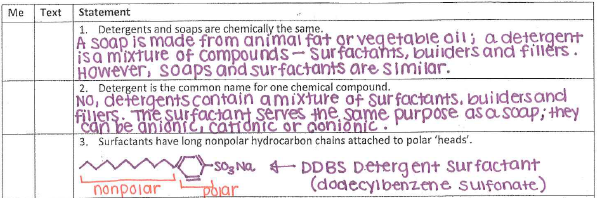 Me Text Statement
1. Detergents and soaps are chemically the same.
A soap is made from animal fat or vegetable oil; a detergent
is a mixture of compounds - surfactants, builders and fillers.
However, soaps and surfactants are similar.
2. Detergent is the common name for one chemical compound.
No, detergents contain a mixture of surfactants, builders and
fillers. The surfactant serves the same purpose as a soap; they
can be anionic, cationic or nonionic.
3. Surfactants have long nonpolar hydrocarbon chains attached to polar 'heads'.
-SO3Na ← DDBS Detergent Surfactant
nonpolar polar (dodecylbenzene sulfonate)